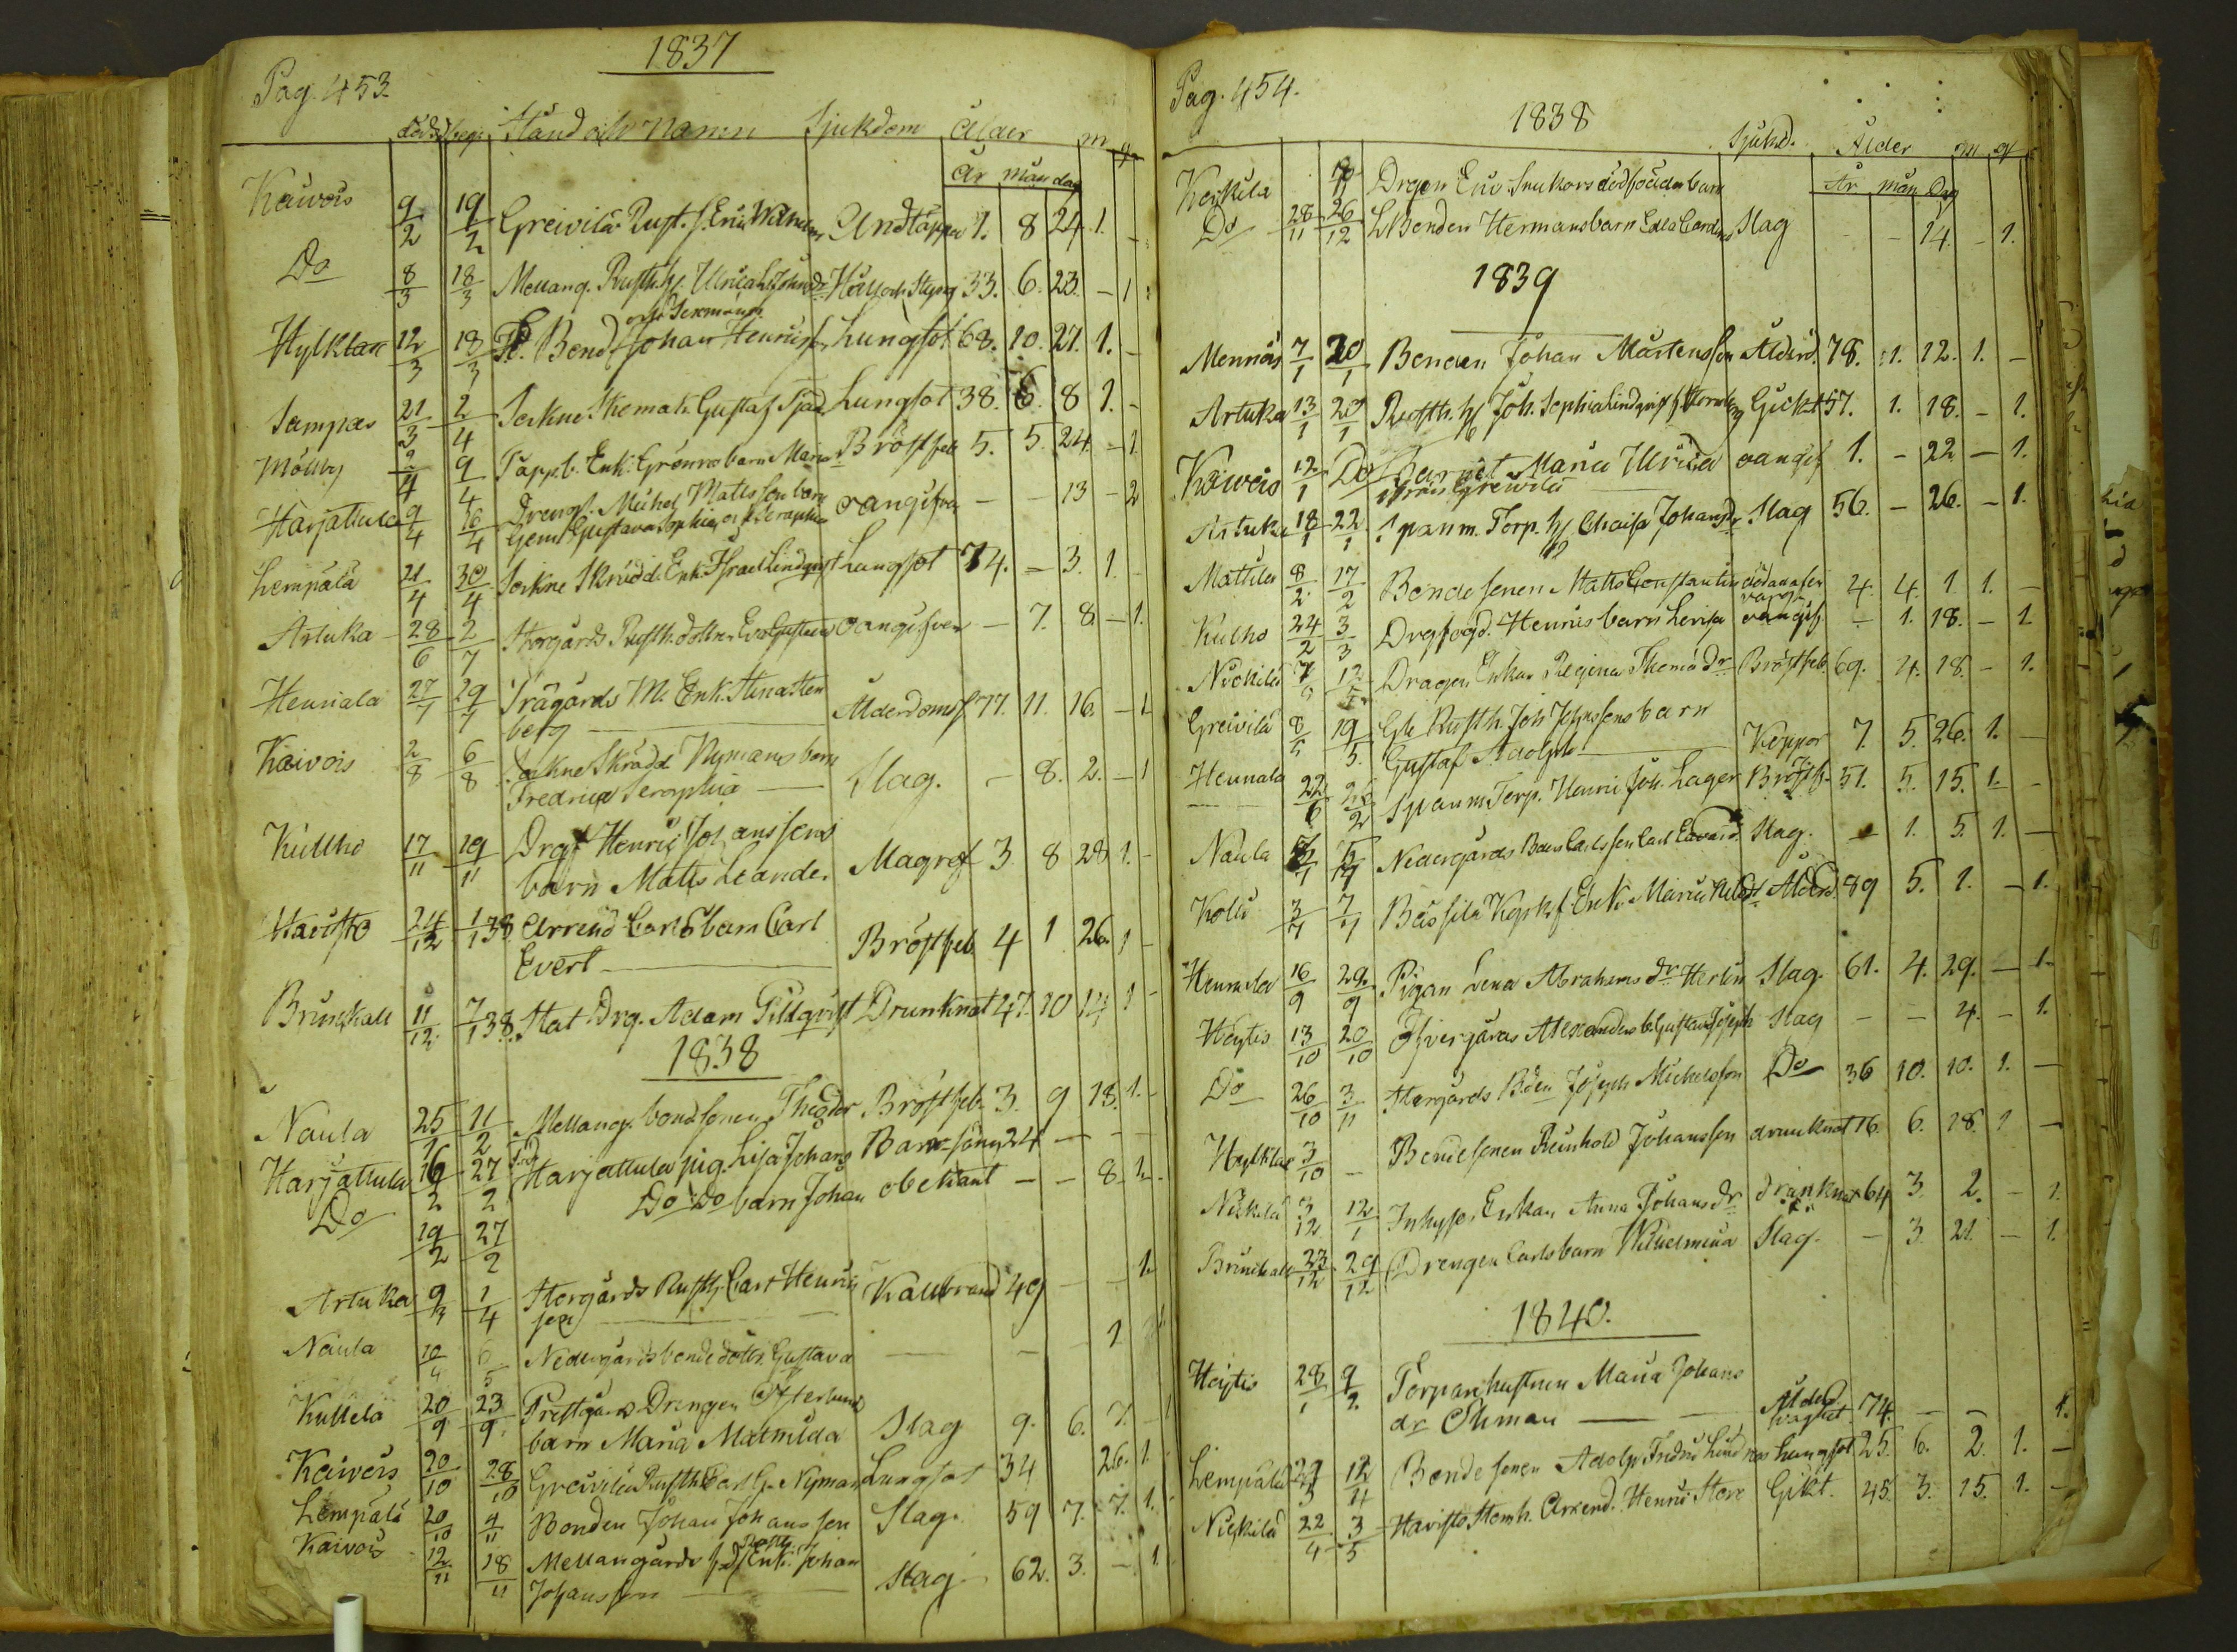 Pag. 453.
1837
död begr Stånd och Namn Sjukdom Ålder m q
År mån dag
Kaivois 9/2 19/2 Greivilä Rust. s. Eric Andtäppa 1. 8 24. 1. –
Do 8/3 18/3 Mellang. Rusth. h. Ulrica Håll och Styng 33. 6. 23. – 1.
Hylkilax 12/3 18/3 Bond. Johan Henricss. Lungsot 68. 10. 27. 1. –
Sampas 21/3 2/4 Sockne Skomak. Gustaf Lungsot 38. 6. 8 1. –
Mölleby 2/4 9/4 Tappb. Enk. Grönroos barn Maria Bröstfeb 5. 5. 24. – 1.
Harjattula 9/4 16/4 Drengs. Michel Matsson barn
Gem. Gustava Sophia och Seraphia oangifven – – 13 – 2
Lempälä 21/4 30/4 Sockne Skrädd. Enk. Israel Lindqvist Lungsot 74. – 3. 1. –
Artuka 28/6 2/7 Storgårds Rusth. dottr. Eva Gustava oangifven – 7. 8. – 1.
Hennala 27/7 29/7 Trägårds M. Enk. Stina Sten
berg Ålderdomss 77. 11. 16. – 1.
Kaivois 2/8 6/8 Sockne Skrädd Nymans barn
Fredrica Seraphia Slag. – 8. 2. – 1
Kullho 17/11 19/11 Drgs Henric Johanssons
barn Matts Leander Magref 3. 8 28 1. –
Haristo 24/12 1/1 38. Arrend Carl barn Carl
Evert Bröstfeb 4 1 26. 1 –
Brinkall 11/12 7/1 38. Stat Drg. Adam Pihlqvist Drunknat 47. 10 14 1 –
1838
Naula 25/1 11/2 Mellang. bondsonen Theodor Bröstfeb. 3. 9 18. 1. –
Harjattula 16/2 27/2 Harjattula pig. Lisa Johans Barnsäng 24 – –
Do 19/2 27/2 Do Do barn Johan obekant – – 8. 1.
Artuka 9/3 1/4 Storgårds Rusth. Carl Henric
son Kallbrand 49 – – 1.
Naula 10/4 6/5 Nedergårds bonde dottr. Gustava – – – 1
Kullela 20/9 23/9 Prestgårds Drengen Österlunds
barn Maria Mathilda Slag 9. 6. 7. – 1
Kaivois 20/10 28/10 Greivilä Rusth. Carl G. Nyman Lungsot 34 26. 1.
Lempälä 20/10 4/11 Bonden Johan Johansson Slag. 59 7. 7. 1.
Kaivois 12/11 18/11 Mellangårds Enk. Johan
Johansson Slag 62. 3. – 1.
Pag. 454.
1838
Sjukd. Ålder m q
År mån Dag
Keskula Drgen Eric dödfödda barn
Do 28/11 26/12 LBonden Hermans barn Slag – – 14. – 1.
1839
Mennäs 7/1 20/1 Bonden Johan Mårtensson Ålderd. 78. 1. 12. 1. –
Artuka 13/1 20/1 Rusth. h. Joh. Sophia Lindqvist Gickt 57. 1. 18. – 1.
Kaivois 12/1 Do Barnet Maria Ulrica
från Greivilä oangif 1. – 22 – 1.
Artuka 18/1 22/1 Spanm. Torp. h. Johansdr Slag 56. – 26. – 1.
Mattila 8/2 17/2 Bondesonen Matts Constantin 4. 4. 1 1. –
Kulho 24/2 3/3 Drgfogd. Henrics barn Lovisa oangif – 1. 18. – 1.
Nickilä 12/5 Dragon Enkan Regina Thomædr Bröstfeb. 69. 4. 18. – 1.
Greivilä 8/5 19/5. Rusth. Joh. Johnssons barn
Gustaf Adolph Koppor 7. 5. 26. 1. –
Hennala 22/6 Spanm. Torp. Henric Joh. Lager Bröstf. 51. 5. 15. 1. –
Naula Nedergårds Bond. Carlsson Carl Edvard Slag. – 1. 5. 1. –
Kolli 3/7 7/7 Bässilä Enk. Maria Ålderd. 89 5. 1. – 1.
Hennala 16/9 29/9 Pigan Lena Abrahams dr Herlin Slag. 61. 4. 29. – 1.
Höytis 13/10 20/10 Öfvergårds Alexanders b. Gustav Joseph Slag – – 4. – 1.
Do 26/10 3/11 Storgårds Bden Joseph Michelsson Do 36 10. 10. 1. –
Hylkilax 3/10 – Bondesonen Reinhold Johansson drunknat 16. 6. 18. 1 –
Nickilä 3/12 12/1 Inhyses Enkan Anna Johans dr drunknat 64 3. 2. – 1.
Brinkall 23/12 29/12 Drengen Carls barn Wilhelmina Slag. – 3. 21. – 1.
1840.
Höytis 28/1 9/2. Torpar hustrun Maria Johans
dr Öhman Ålderd
svaghet 74. – – 1.
Lempälä Bondesonen Adolp Fredric Lind Lungsot 25. 6. 2. 1. –
Nickilä 22/4 3/5 Havisto Arrend. Henric Gikt. 45. 3. 15. 1. –